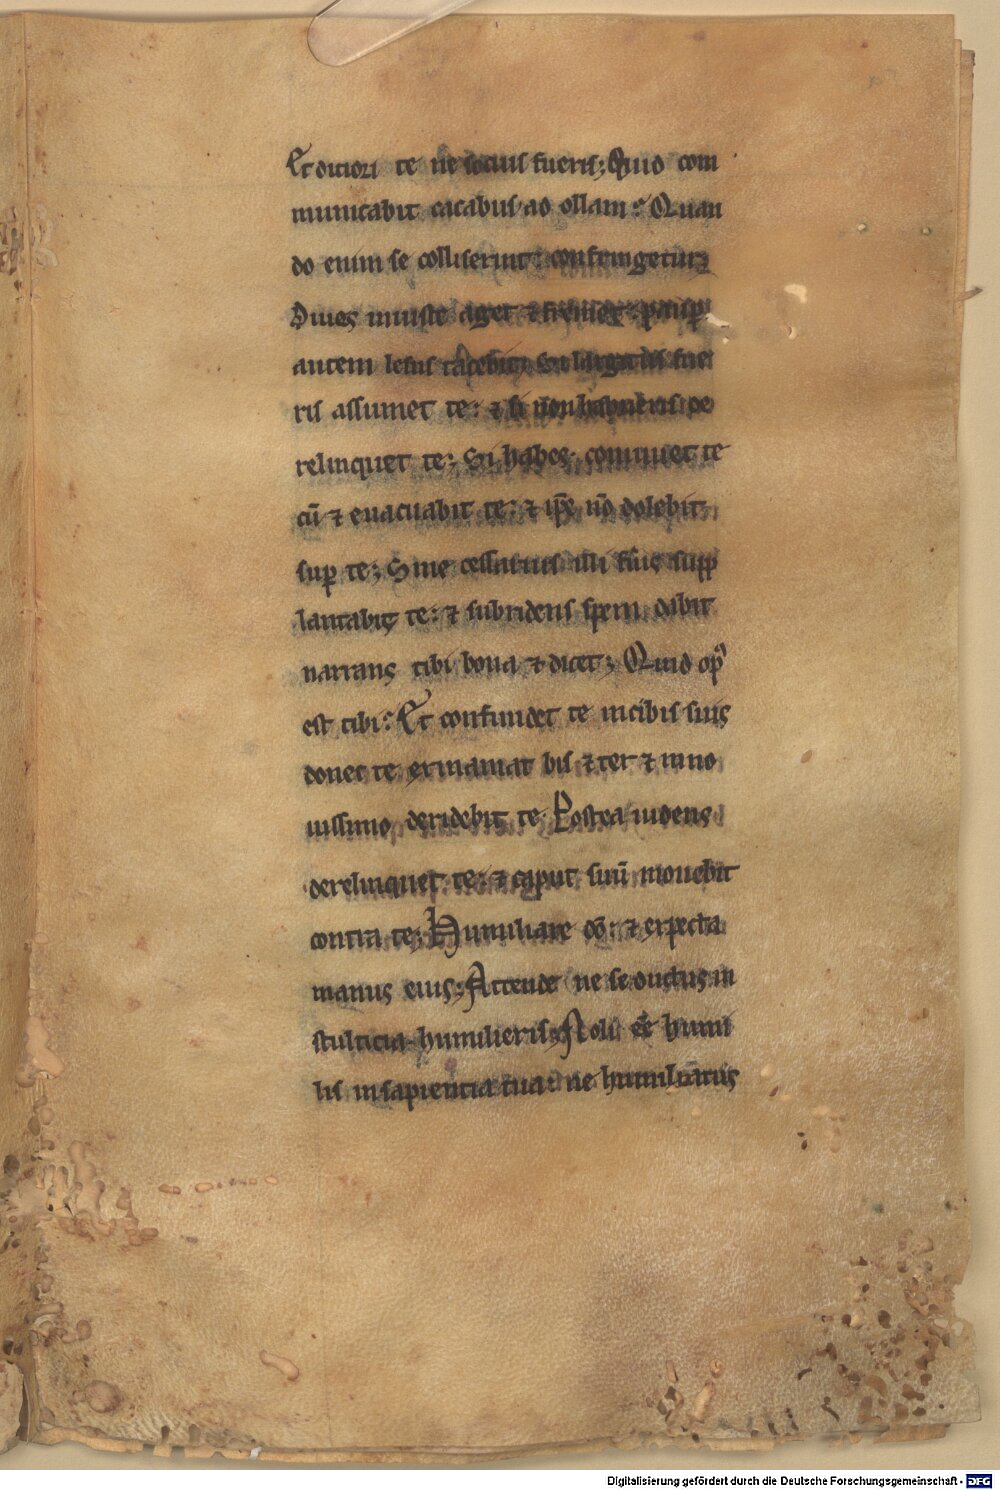 Et diciori te ne socius fueris; Quid com
municabit cacabus ad ollam? Quan
do enim se colliserint: confringetur;
Diues iniuste aget ⁊ fremet: paup̲
autem lesus tacebit; Si largitus fue
ris assumet te: ⁊ si non habueris de
relinquet te; Si habes conuiuet te
cū ⁊ euacuabit te: ⁊ ip̄e nō dolebit
sup̲ te; Si ne cessarius illi fūis supp
lantabit te: ⁊ subridens spem dabit
narrans tibi bona ⁊ dicet; Quid op̲
est tibi? Et confundet te in cibis suis
donec te exinaniat bis ⁊ ter ⁊ in no
uissimo deridebit te. Postea uidens
derelinquet te: ⁊ caput suū mouebit
contra te; Humiliare dō: ⁊ expecta
manus eius; Attende ne seductus in
stulticia humilieris; Noli eē humi
lis in sapientia tua: ne humiliatus
Digitalisierung gefördert durch die Deutsche Forschungsgemeinschaft - DFG